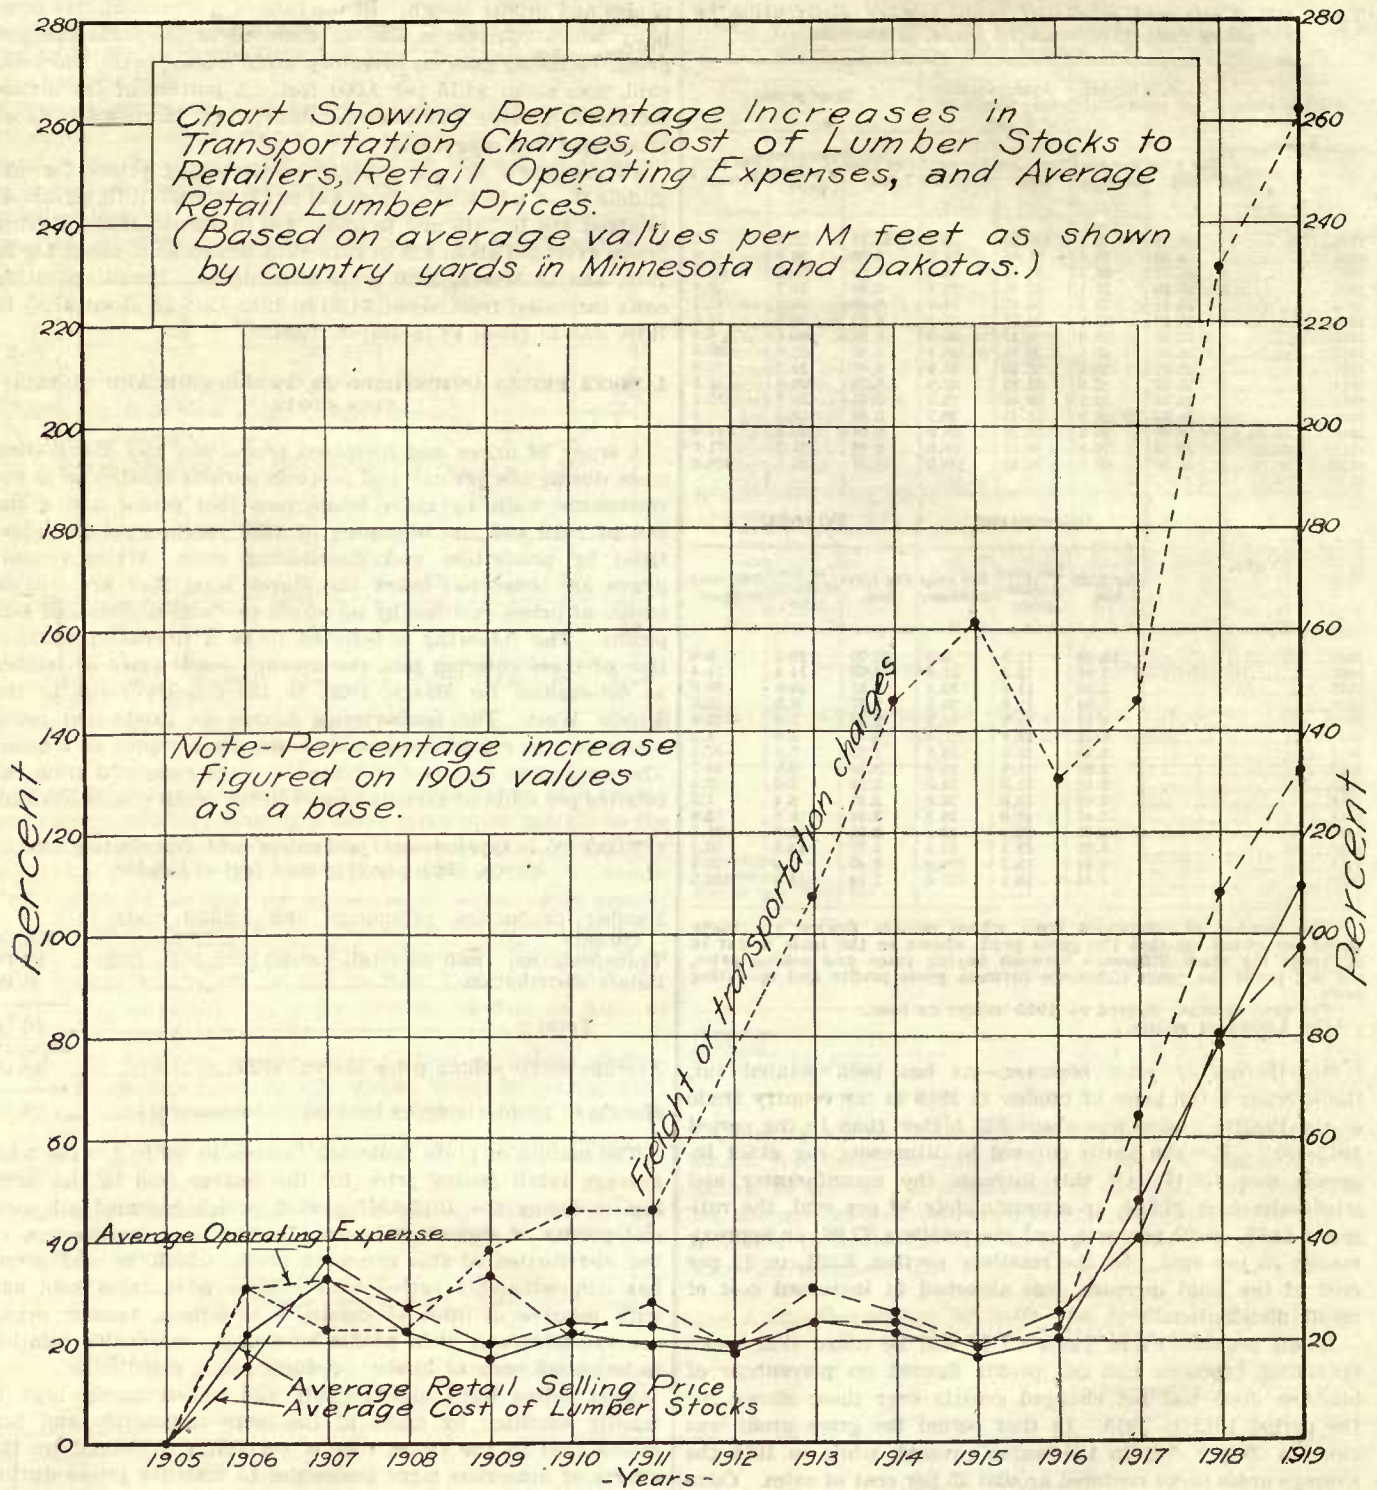 Chart Showing Percentage Increases in
Transportation Charges, Cost of Lumber Stocks to
Retailers, Retail Operating Expenses, and Average
Retail Lumber Prices.
(Based on average values per M feet as shown
by country yards in Minnesota and Dakotas.)
Note- Percentage increase
figured on 1905 values
as a base.
280
260
240
220
200
180
160
140
120
100
80
60
40
20
0
Percent
Freight or transportation charges
Average Operating Expense
Average Retail Selling Price
Average Cost of Lumber Stocks
280
260
240
220
200
180
160
140
120
100
80
60
40
20
Percent
1905 1906 1907 1908 1909 1910 1911 1912 1913 1914 1915 1916 1917 1918 1919
-Years-